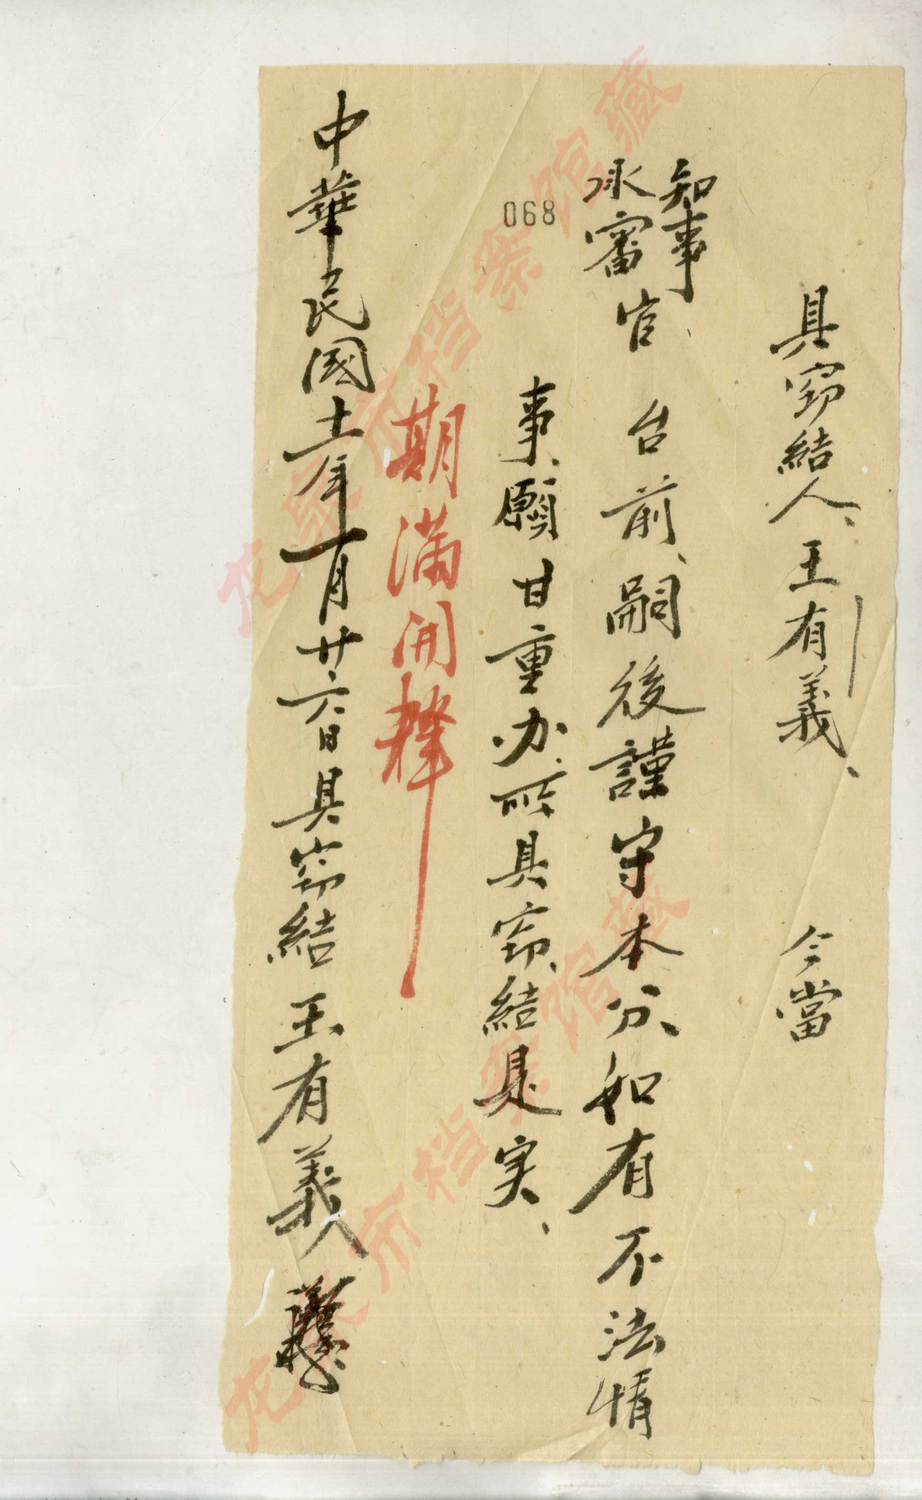 具窃結人、王有義、 今當
知事
承審官、台前、嗣後謹守本分、如有不法情
068
事、願甘重办、所具窃、結是实、
期滿開釋
中華民國十一年一月廿六日具窃結王有義
龙泉市档案馆藏
龙泉市档案馆藏